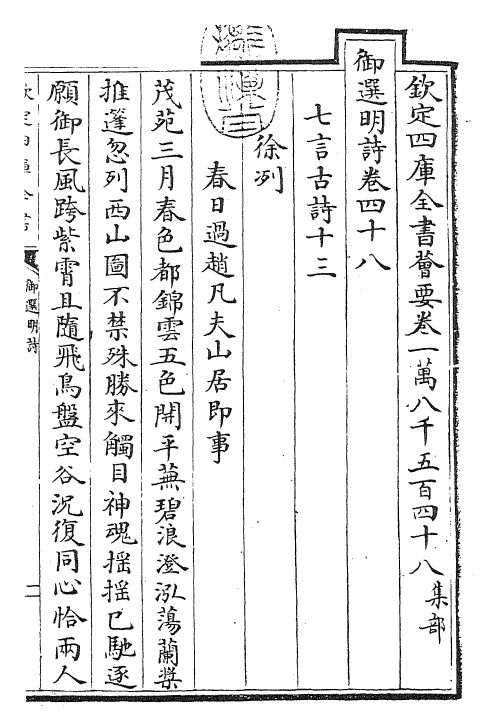 欽定四庫全書薈要卷一萬八千五百四十八集部
御選明詩卷四十八
七言古詩十三
徐冽
春日過趙凡夫山居即事
茂苑三月春色都錦雲五色開平蕪碧浪澄泓蕩蘭槳
推篷忽列西山圖不禁殊勝來觸目神魂揺揺已馳逐
願御長風跨紫霄且隨飛鳥盤空谷況復同心恰兩人
御選明詩
一